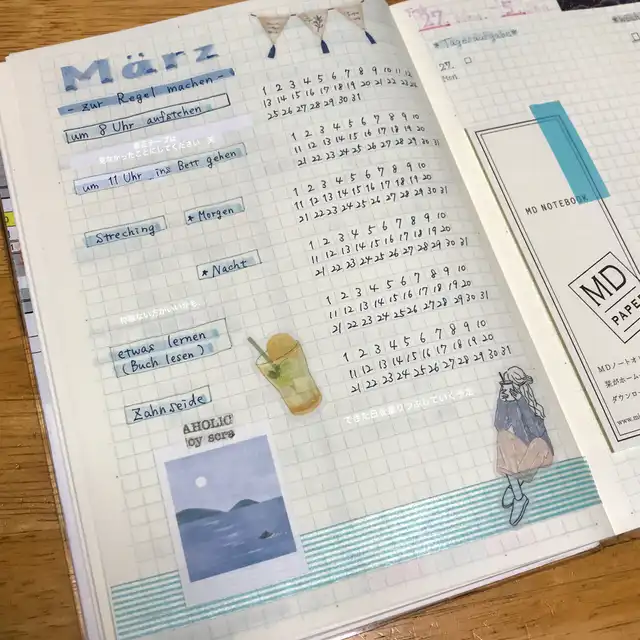 März
- zur Regel machen -
um 8 Uhr aufstehen
um 11 Uhr ins Bett gehen
Streching
* Morgen
* Nacht
etwas lernen
(Buch lesen)
Zahnseide
AHOLIC
oy sora
1 2 3 4 5 6 7 8 9 10 11 12
13 14 15 16 17 18 19 20 21 22 23 24
25 26 27 28 29 30 31
1 2 3 4 5 6 7 8 9 10
11 12 13 14 15 16 17 18 19 20
21 22 23 24 25 26 27 28 29 30 31
1 2 3 4 5 6 7 8 9 10
11 12 13 14 15 16 17 18 19 20
21 22 23 24 25 26 27 28 29 30 31
1 2 3 4 5 6 7 8 9 10
11 12 13 14 15 16 17 18 19 20
21 22 23 24 25 26 27 28 29 30 31
1 2 3 4 5 6 7 8 9 10
11 12 13 14 15 16 17 18 19 20
21 22 23 24 25 26 27 28 29 30 31
1 2 3 4 5 6 7 8 9 10
11 12 13 14 15 16 17 18 19 20
21 22 23 24 25 26 27 28 29 30 31
できた日は塗りつぶしていく
27.
5.
*Tagesaufgabe*
27.
Mon
MD NOTEBOOK
MD
PAPE
MDノート
ダウンロー